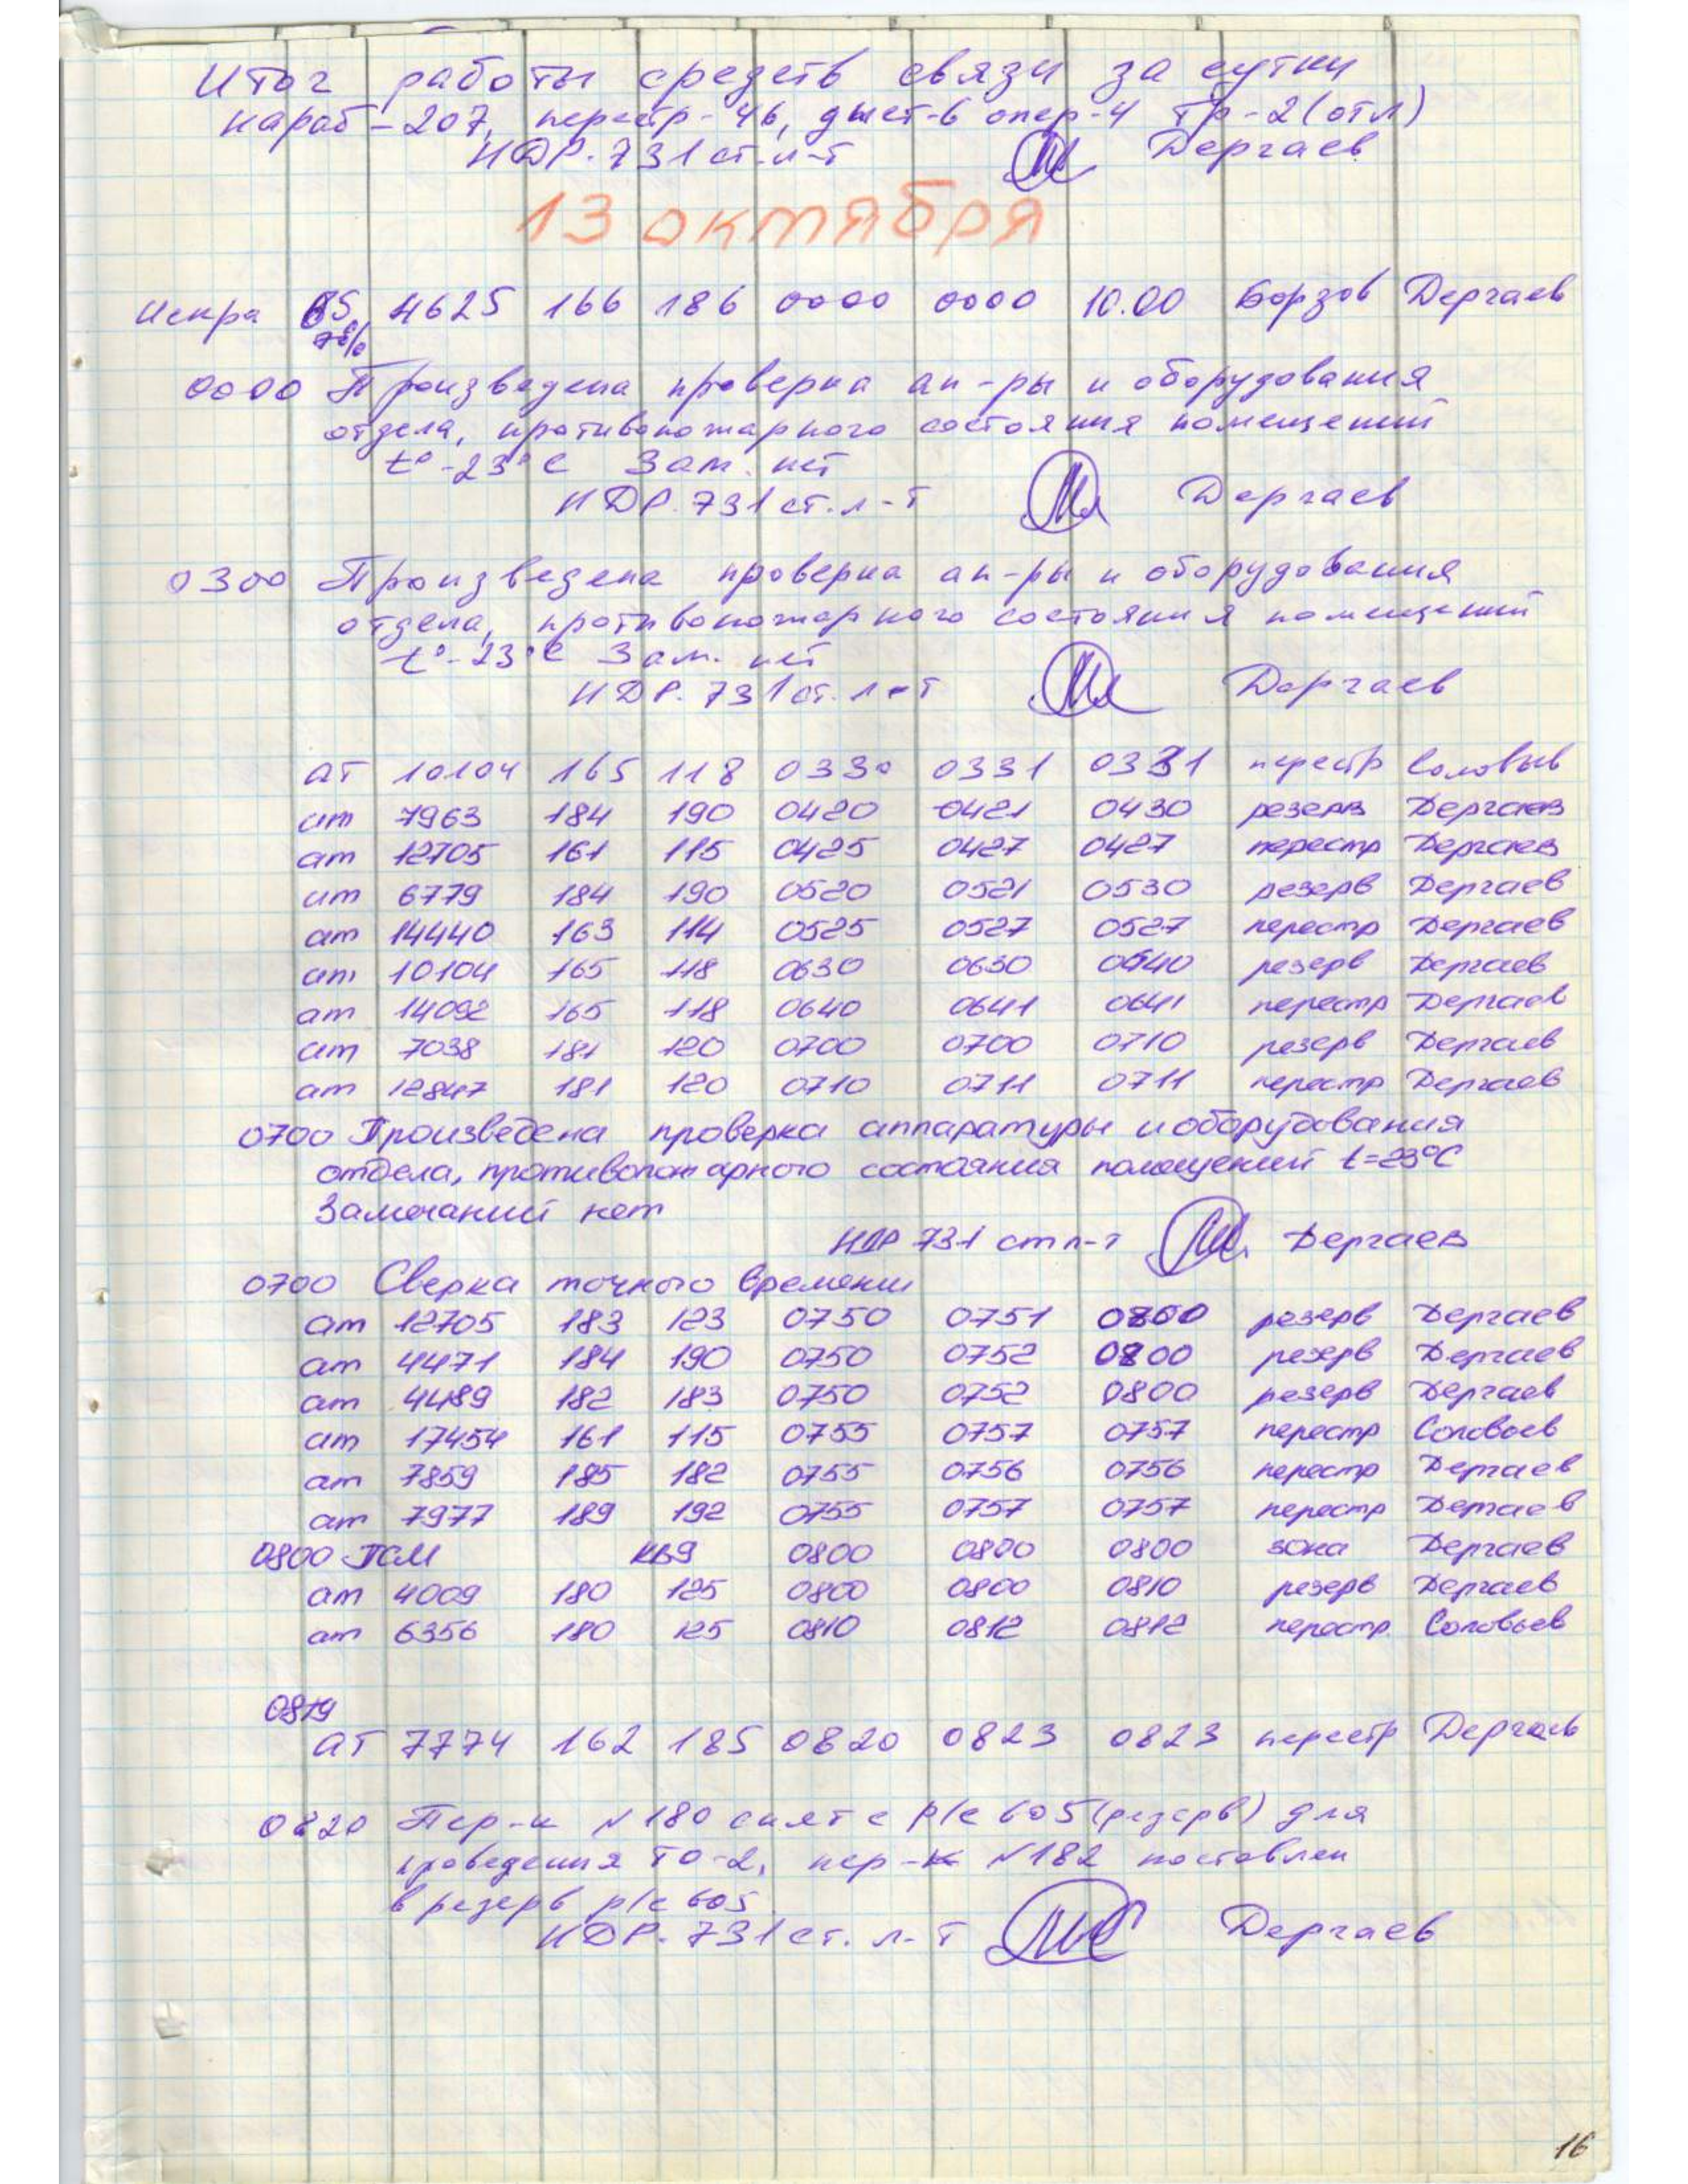 Итог работы средств связи за сутки
караб-207, перестр-46, дист-6 опер-4 тр-2(отл)
НДР.731 ст.л-т Дергаев
13 октября
Искра 4625 166 186 0000 0000 10.00 Борзов Дергаев
0000 Произведена проверка ап-ры и оборудования
отдела, противопожарного состояния помещений
t°-23°С Зам. нет
НДР.731 ст.л-т Дергаев
0300 Произведена проверка ап-ры и оборудования
отдела, противопожарного состояния помещений
t°-23°С Зам. нет
НДР.731 ст.л-т Дергаев
ат 10104 165 118 0330 0331 0331 перестр Соловьев
ат 7963 184 190 0420 0421 0430 резерв Дергаев
ат 12705 161 115 0425 0427 0427 перестр Дергаев
ат 6779 184 190 0520 0521 0530 резерв Дергаев
ат 14440 163 114 0525 0527 0527 перестр Дергаев
ат 10104 165 118 0630 0630 0640 резерв Дергаев
ат 14092 165 118 0640 0641 0641 перестр Дергаев
ат 7038 181 120 0700 0700 0710 резерв Дергаев
ат 12847 181 120 0710 0711 0711 перестр Дергаев
0700 Произведена проверка аппаратуры и оборудования
отдела, противопожарного состояния помещений t=23°С
Замечаний нет
НДР 731 ст л-т Дергаев
0700 Сверка точного времени
ат 12705 183 123 0750 0751 0800 резерв Дергаев
ат 4471 184 190 0750 0752 0800 резерв Дергаев
ат 4489 182 183 0750 0752 0800 резерв Дергаев
ат 17454 161 115 0755 0757 0757 перестр Соловьев
ат 7859 185 182 0755 0756 0756 перестр Дергаев
ат 7977 189 192 0755 0757 0757 перестр Дергаев
0800 ПСМ КВ9 0800 0800 0800 зона Дергаев
ат 4009 180 125 0800 0800 0810 резерв Дергаев
ат 6356 180 125 0810 0812 0812 перестр. Соловьев
0819
ат 7774 162 185 0820 0823 0823 перестр Дергаев
0820 Пер-к N180 снят с р/с 605 (резерв) для
проведения ТО-2, пер-к N182 поставлен
в резерв р/с 605
НДР.731 ст. л-т Дергаев
16